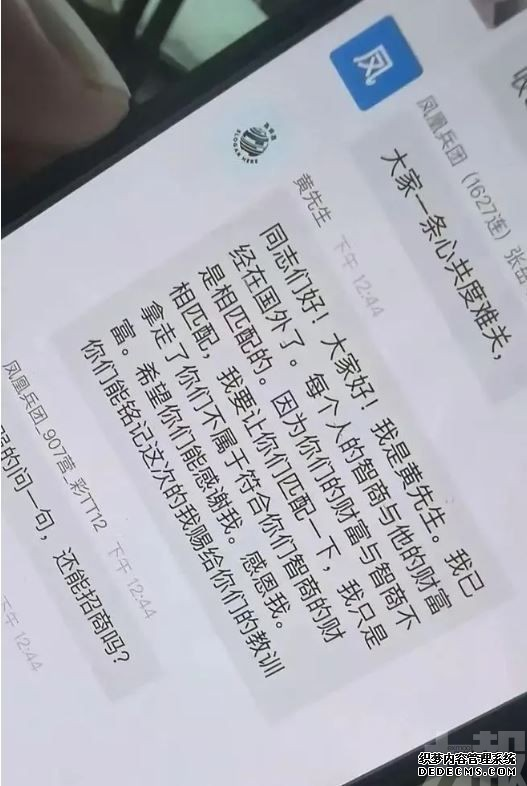 凤
凤凰兵团（1627连）张
大家一条心共度难关，
SLOGAN HERE
黄先生 下午 12:44
同志们好！大家好！我是黄先生。我已
经在国外了。每个人的智商与他的财富
是相匹配的。因为你们的财富与智商不
相匹配，我要让你们匹配一下，我只是
拿走了你们不属于符合你们智商的财
富。希望你们能感谢我。感恩我。
你们能铭记这次的我赐给你们的教训
凤凰兵团_907营_彩TT12 下午 12:44
的问一句，还能招商吗？
下午 12:44
织梦内容管理系统
DEDECMS.COM